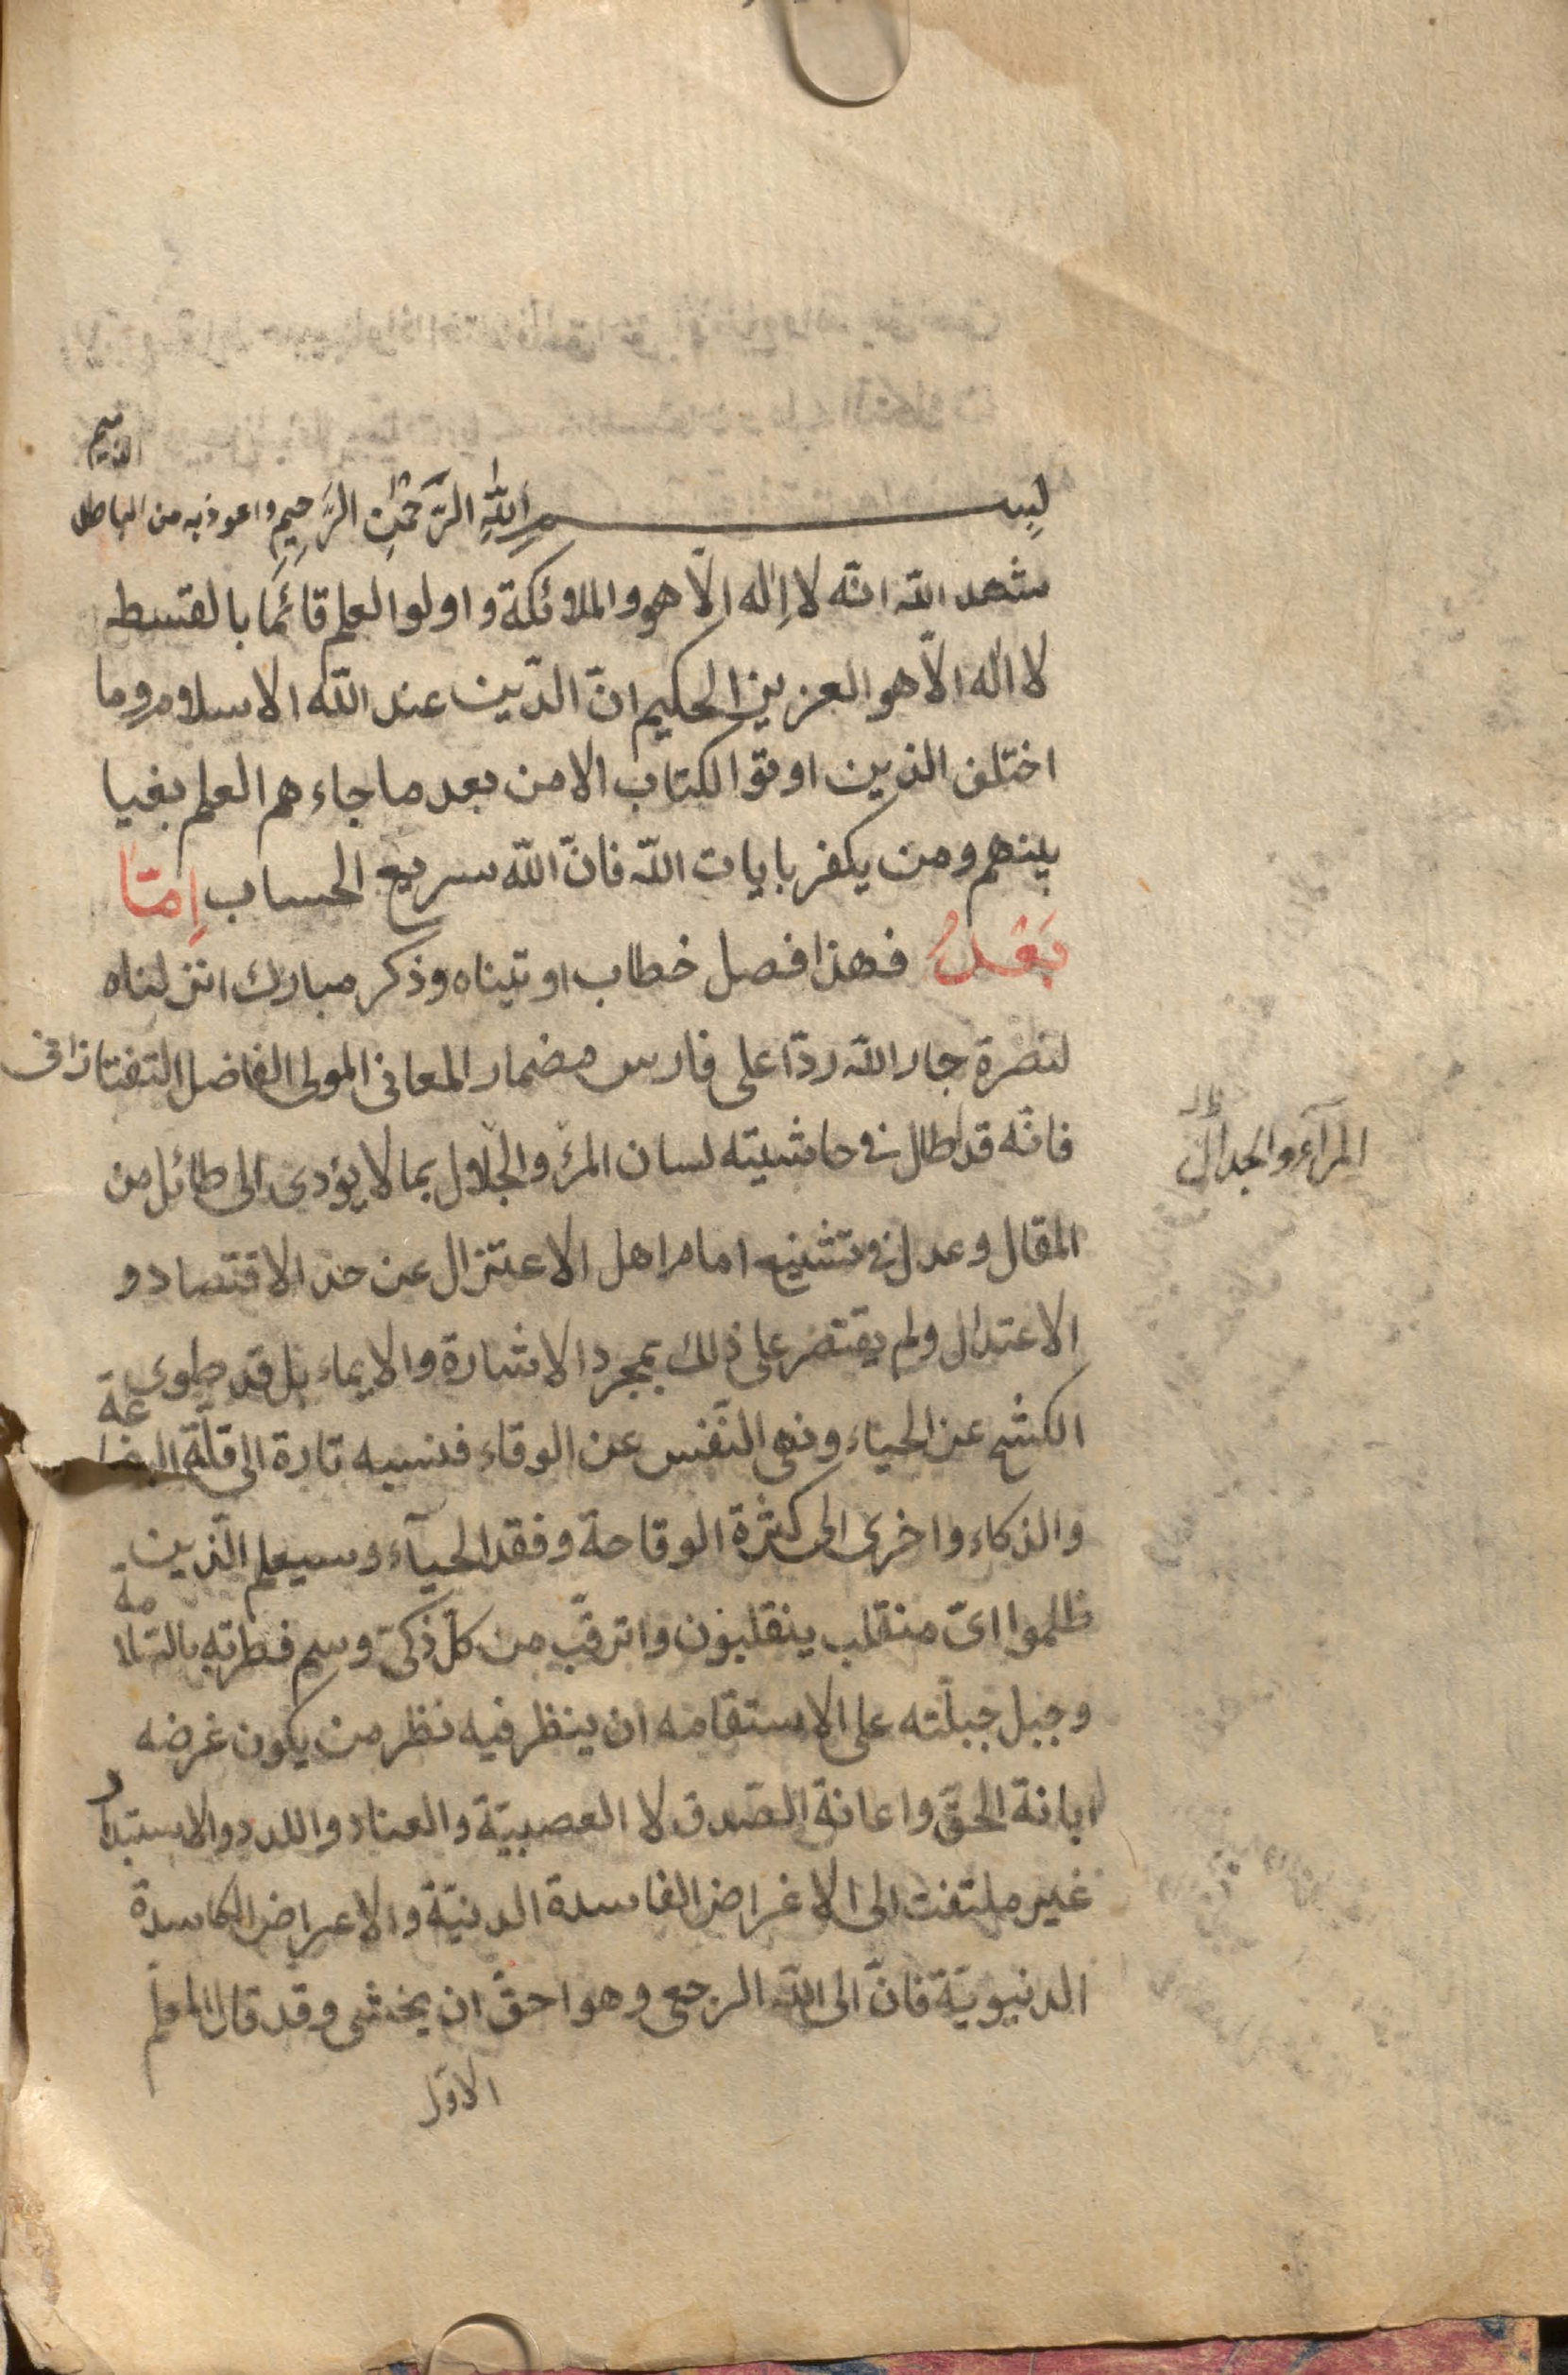 بسم الله الرحمن الرحيم واعوذ به من الباطل الذميم
شهد الله انّه لا اِله الّا هو والملائكة واولوا العلم قائمًا بالقسط
لا اله الّا هو العزيز الحكيم انّ الدّين عند اللّه الاسلام وما
اختلف الذين اوتو الكتاب الا من بعد ما جاءهم العلم بغيا
بينهم ومن يكفر بايات اللّه فانّ اللّه سريع الحساب اِمّا
بَعْدُ فهذا فصل خطاب اوتيناه وذكر مبارك انزلناه
لنصرة جار اللّه ردّا على فارس مضمار المعانى المولى الفاضل التفتازانى
فانّه قد اطال فى حاشيته لسان المرء والجلال بما لا يؤدى الى طائل من
المرآء والجدال ظ
المقال وعدل فى تشنيع امام اهل الاعتزال عن حدّ الاقتصاد و
الاعتدال ولم يقتصر على ذلك بمجرد الاشارة والايماء بل قد طوى
الكشح عن الحياء ونهى النّفس عن الوقاء فنسبه تارة الى قلّة البضاعة
والذكاء واخرى الى كثرة الوقاحة وفقد الحيآء وسيعلم الّذين
ظلموا اىّ منقلب ينقلبون واترقّب من كلّ ذكىّ وسم فطرته بالسّلامة
وجبل جبلّته على الاستقامه ان ينظر فيه نظر من يكون غرضه
ابانة الحقّ واعانة الصّدق لا العصبيّة والعناد واللدد والاستبداد
غير ملتفت الى الاغراض الفاسدة الدنيّة والاعراض الكاسدة
الدنيويّة فانّ الى اللّه الرجعى وهو احقّ ان يخشى وقد قال المعلّم
الاوّل